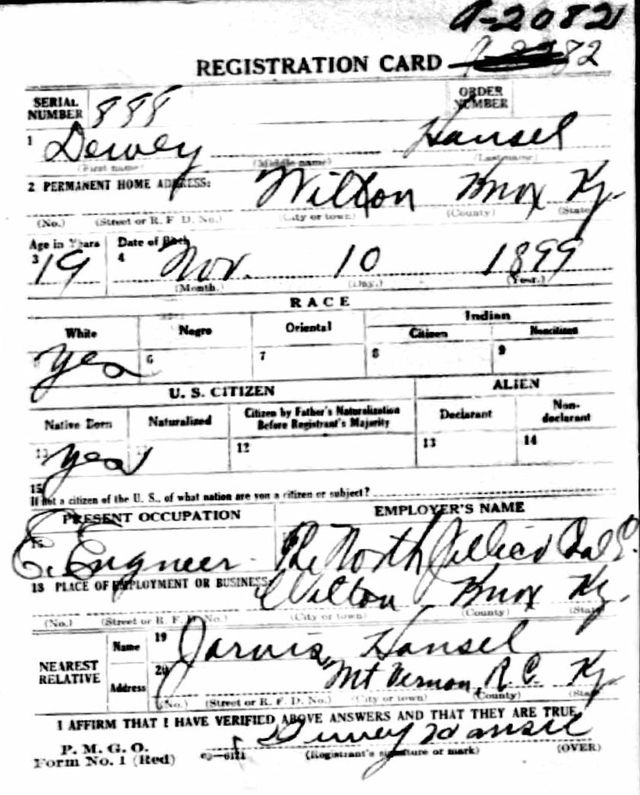 A-20821
REGISTRATION CARD 82
SERIAL NUMBER 888 ORDER NUMBER
1 Dewey Hansel
(First name) (Middle name) (Last name)
2 PERMANENT HOME ADDRESS: Wilton Knox Ky.
(No.) (Street or R. F. D. No.) (City or town) (County) (State)
Age in Years Date of Birth
3 19 4 Nov. 10 1899
(Month.) (Day.) (Year.)
RACE
White Negro Oriental Indian
Citizen Noncitizen
yes 6 7 8 9
U. S. CITIZEN ALIEN
Native Born Naturalized Citizen by Father's Naturalization Before Registrant's Majority Declarant Non-declarant
yes 12 13 14
15
If not a citizen of the U. S., of what nation are you a citizen or subject?
PRESENT OCCUPATION EMPLOYER'S NAME
E. Engneer The North Coal
18 PLACE OF EMPLOYMENT OR BUSINESS: Wilton Knox Ky.
(No.) (Street or R. F. D. No.) (City or town) (County) (State)
NEAREST RELATIVE Name 19 Jarvis Hansel
Address 20 Mt Vernon, R.C. Ky.
(No.) (Street or R. F. D. No.) (City or town) (County) (State)
I AFFIRM THAT I HAVE VERIFIED ABOVE ANSWERS AND THAT THEY ARE TRUE
P. M. G. O. Dewey Hansel
Form No. 1 (Red) (Registrant's signature or mark) (OVER)